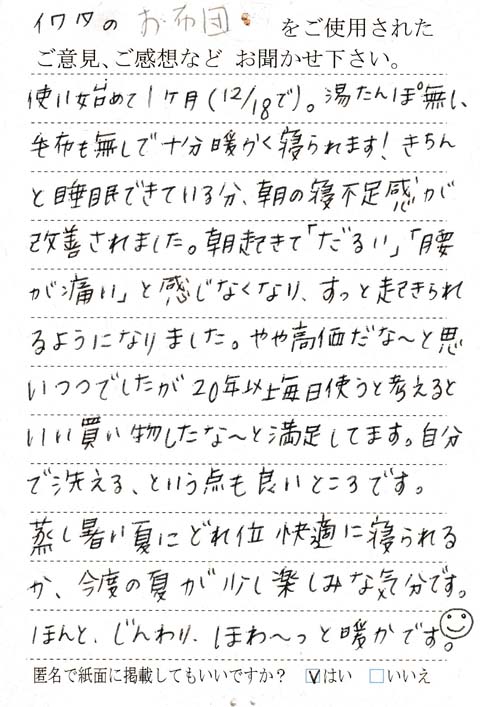 イワタの お布団 をご使用された
ご意見、ご感想など お聞かせ下さい。
使い始めて1ヶ月(12/18で)。湯たんぽ無し、
毛布も無しで十分暖かく寝られます!きちん
と睡眠できている分、朝の寝不足感が
改善されました。朝起きて「だるい」「腰
が痛い」と感じなくなり、すっと起きられ
るようになりました。やや高価だな〜と思
いつつでしたが20年以上毎日使うと考えると
いい買い物したな〜と満足してます。自分
で洗える、という点も良いところです。
蒸し暑い夏にどれ位 快適に寝られる
か、今度の夏が少し楽しみな気分です。
ほんと、じんわり、ほわ〜っと暖かです。
匿名で紙面に掲載してもいいですか? ☑はい □いいえ